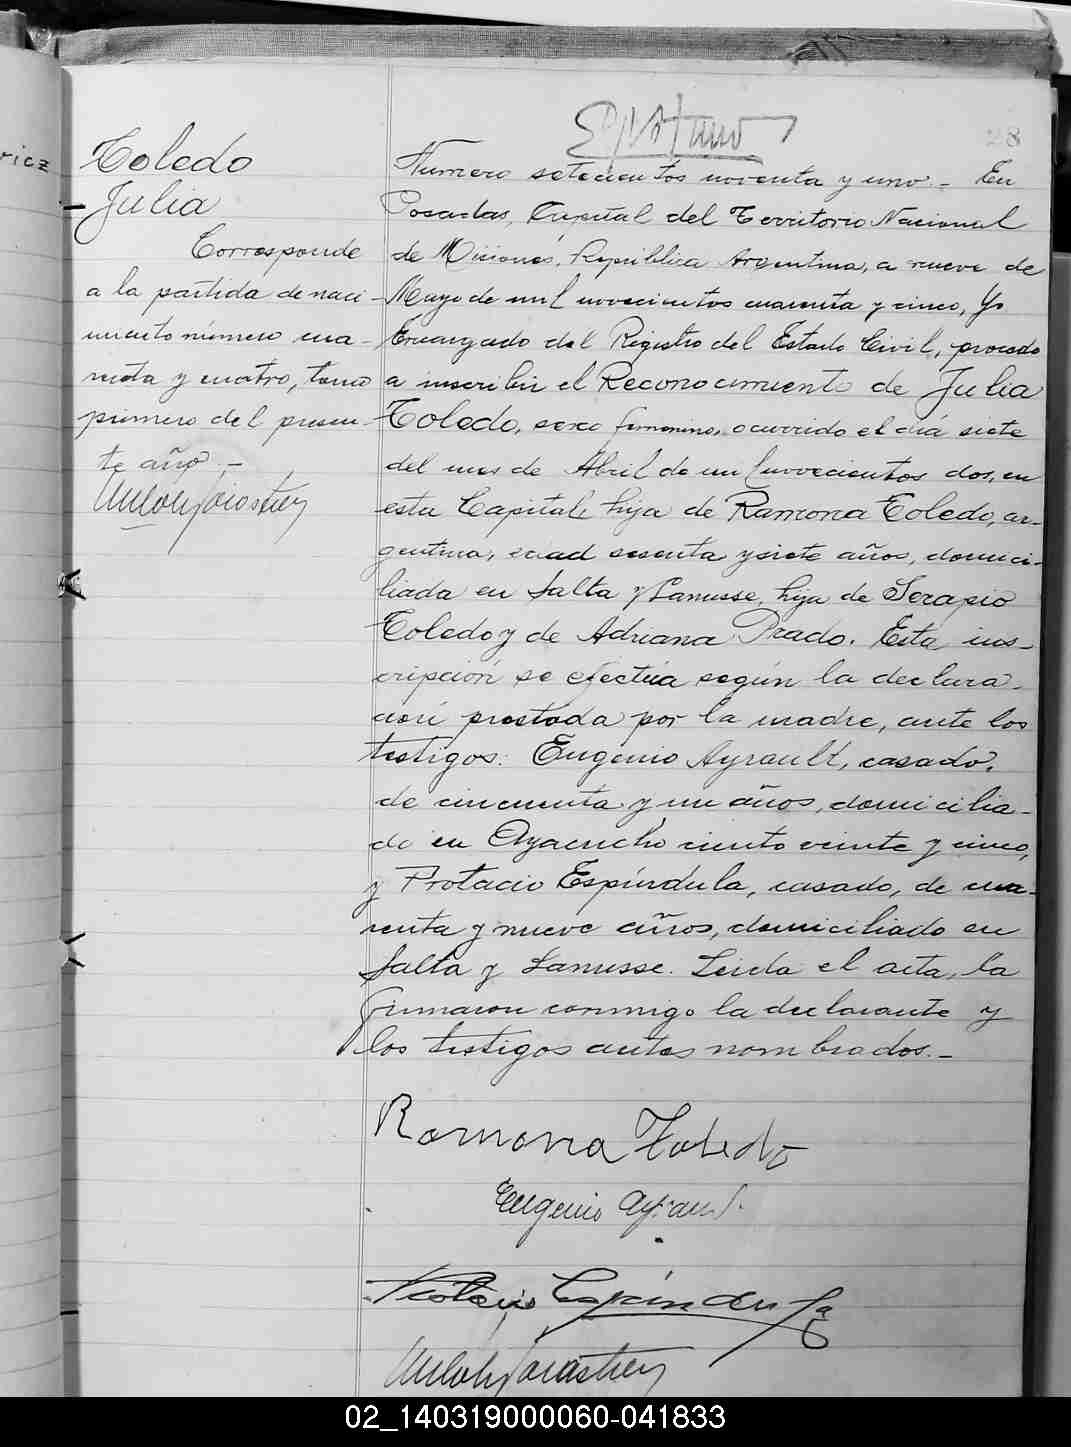 28
ricz
Toledo
Julia
Corresponde
a la partida de naci-
miento número cua-
renta y cuatro, tomo
primero del presen-
te año.-
Número setecientos noventa y uno.- En
Posadas, Capital del Territorio Nacional
de Misiones, República Argentina, a nueve de
Mayo de mil novecientos cuarenta y cinco, Yo
Encargado del Registro del Estado Civil, procedo
a inscribir el Reconocimiento de Julia
Toledo, sexo femenino, ocurrido el día siete
del mes de Abril de mil novecientos dos, en
esta Capital, hija de Ramona Toledo, ar-
gentina, edad sesenta y siete años, domici-
liada en Salta y Lanusse, hija de Serapio
Toledo y de Adriana Prado. Esta ins-
cripción se efectúa según la declara-
ción prestada por la madre, ante los
testigos: Eugenio Ayrault, casado,
de cincuenta y un años, domicilia-
do en Ayacucho ciento veinte y cinco,
y Protacio Espíndula, casado, de cua-
renta y nueve años, domiciliado en
Salta y Lanusse. Leída el acta, la
firmaron conmigo la declarante y
los testigos antes nombrados.-
Ramona Toledo
Eugenio Ayrault.
Protacio Espíndula
02_140319000060-041833